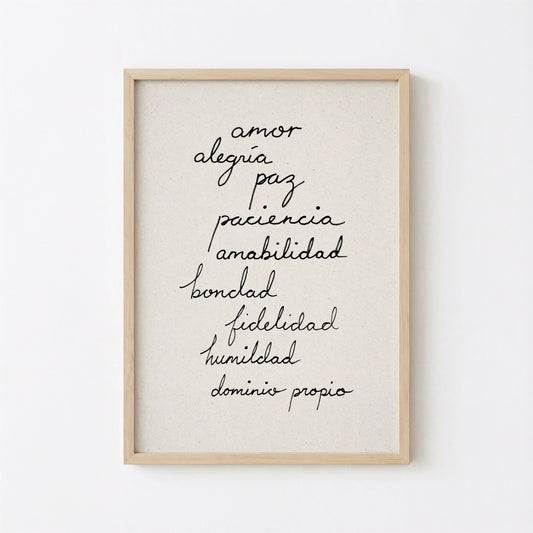 amor
alegría
paz
paciencia
amabilidad
bondad
fidelidad
humildad
dominio propio